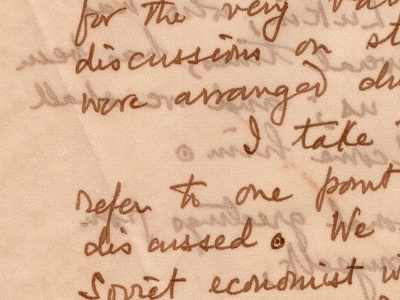 for the very
discussions on
were arranged
I take
refer to one point
discussed. We
Soviet economist